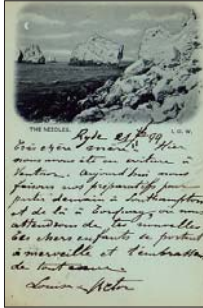 THE NEEDLES. I. O. W.
Ryde
Très chère mère! Hier
nous avons été en voiture à
Ventnor. Aujourd'hui nous
faisons nos préparatifs pour
partir demain à Southampton
et de là à Torquay, où nous
attendons de tes nouvelles
Les chers enfants se portent
à merveille et t'embrassent
de tout coeur.
Louise Victor